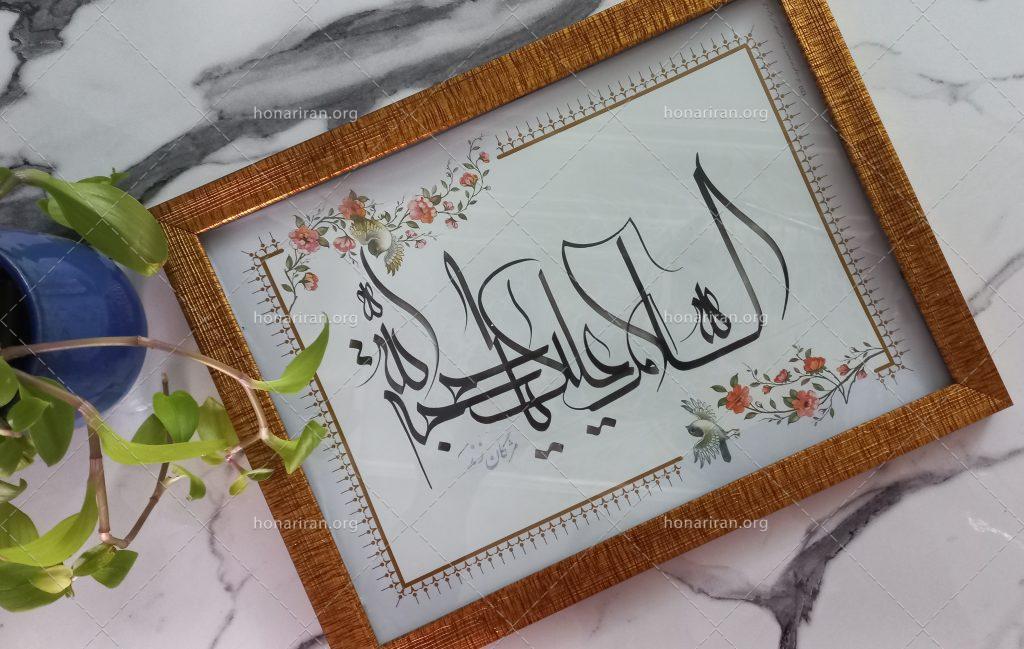 السلام علیک یا حجة الله
مژگان زند
honariran.org
honariran.org
honariran.org
honariran.org
honariran.org
honariran.org